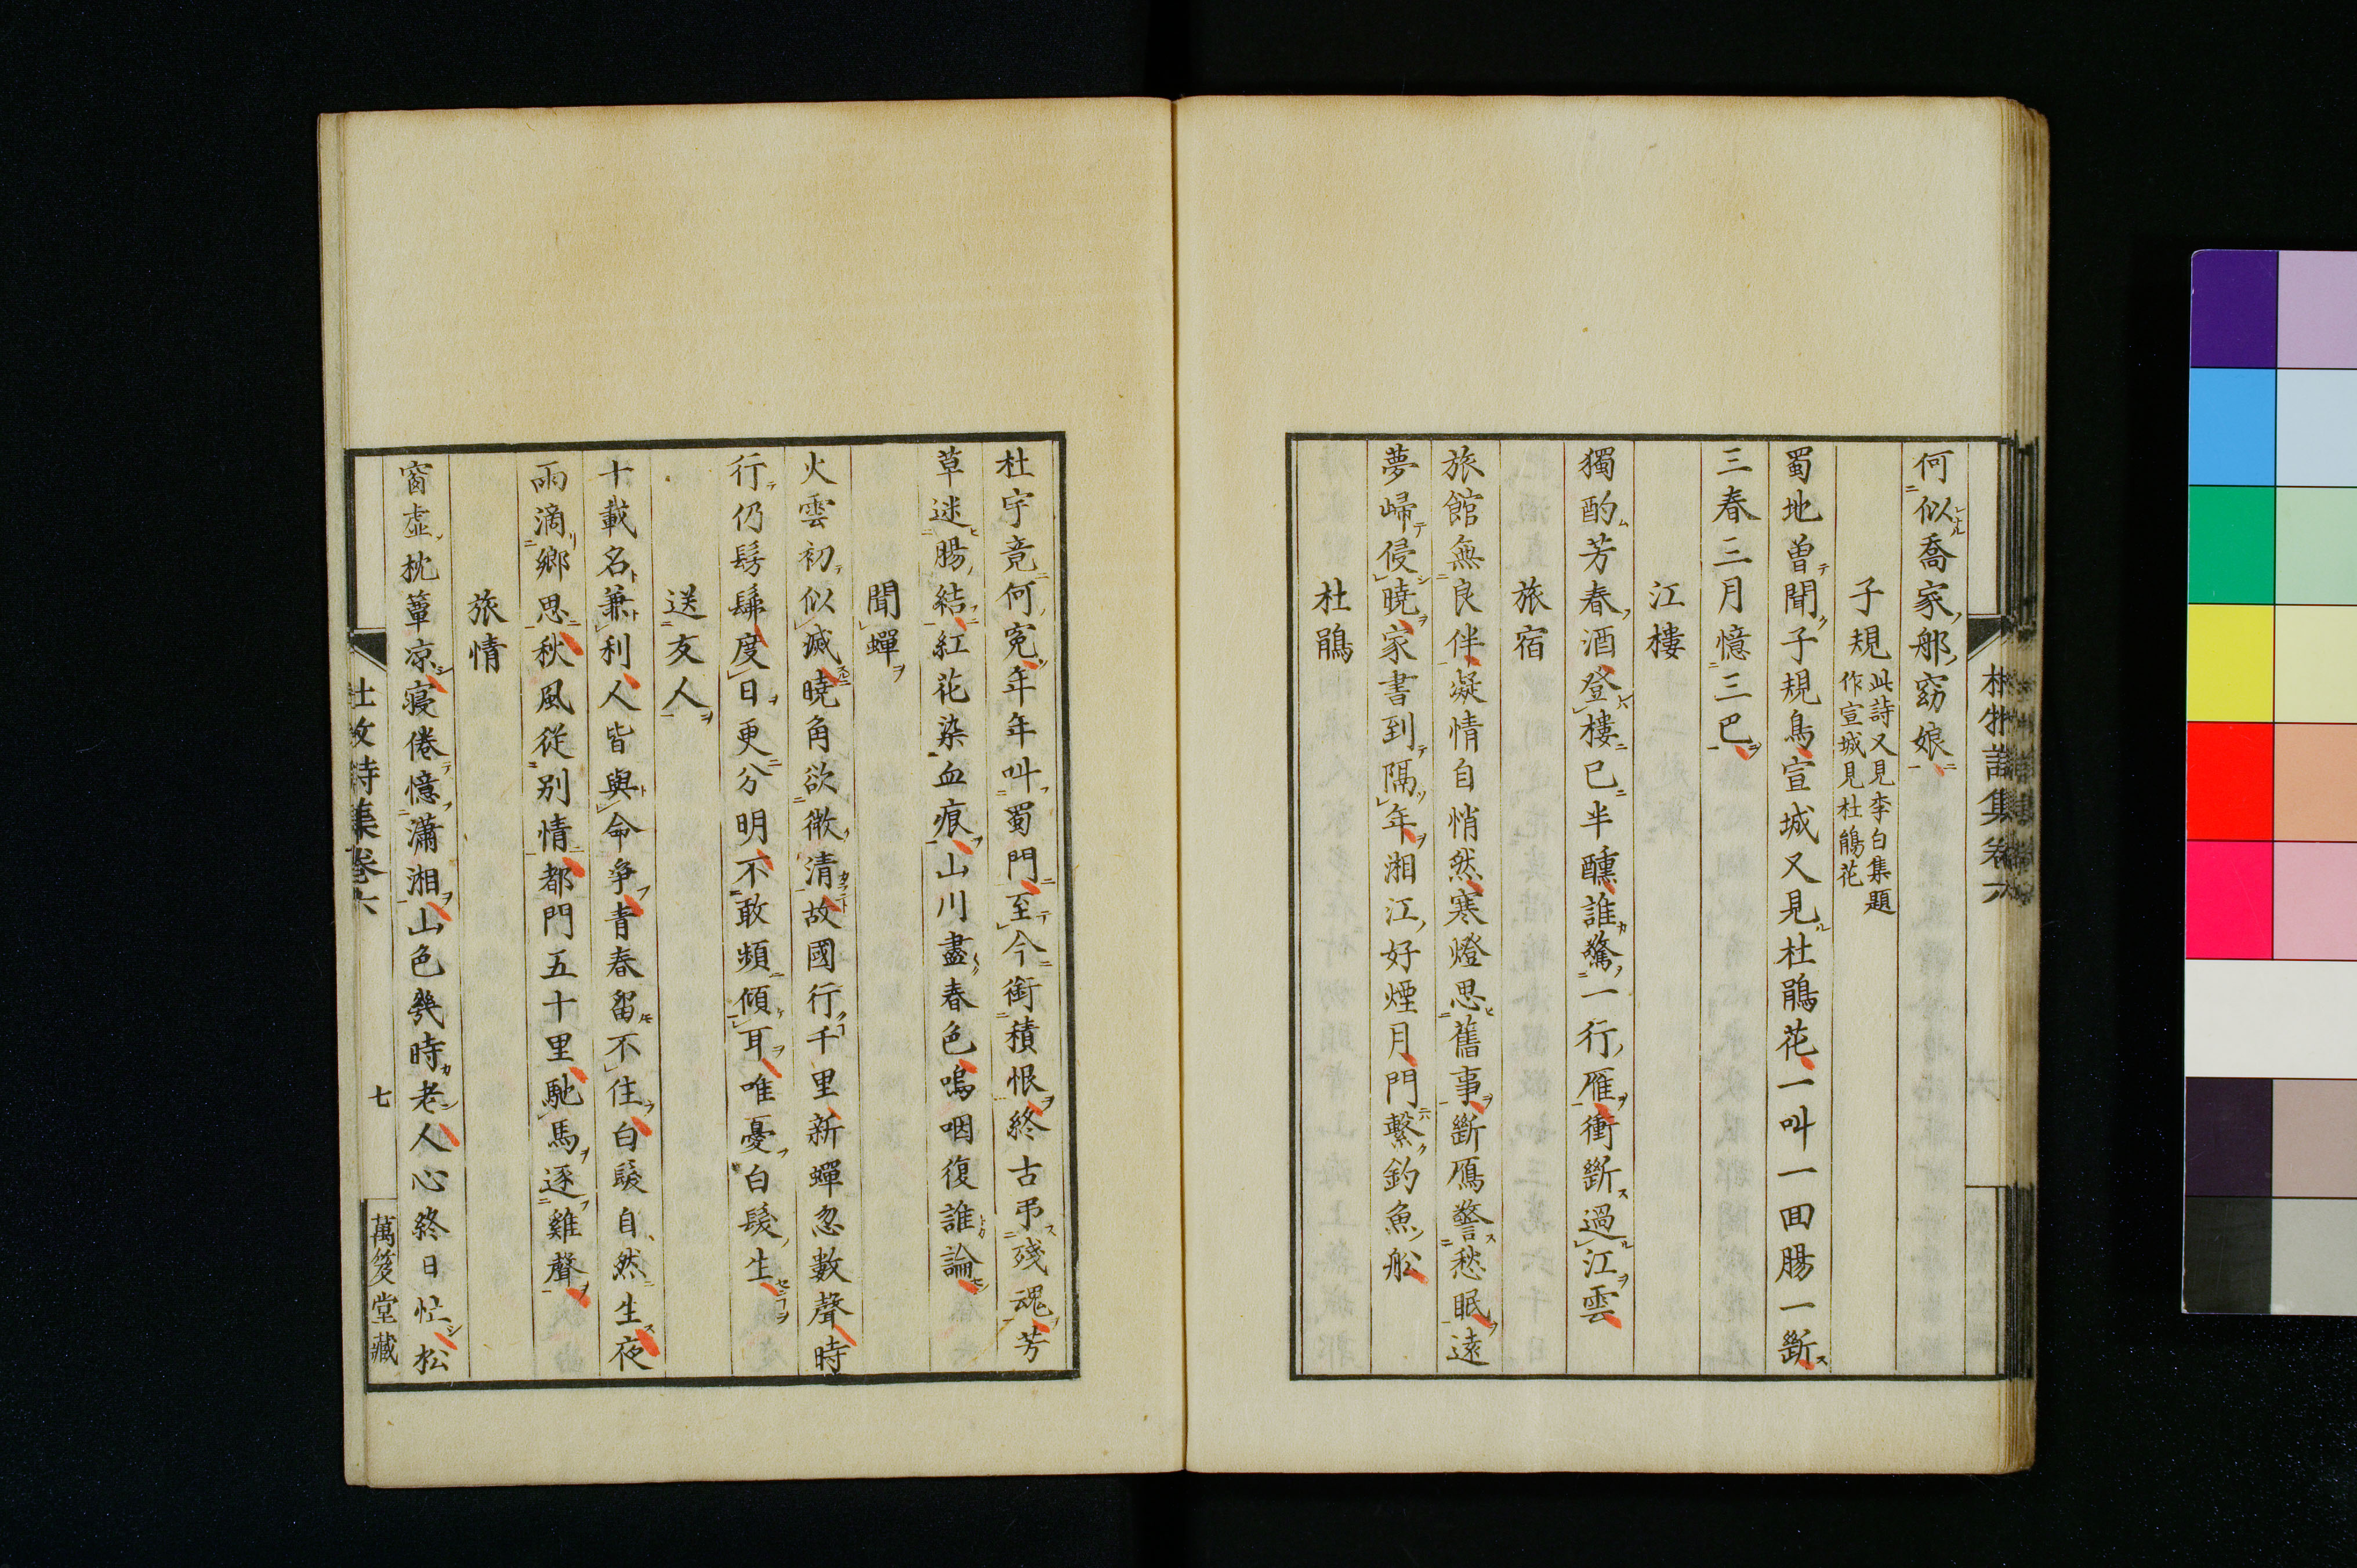 何似喬家那窈娘
子規
此詩又見李白集題
作宣城見杜鵑花
蜀地曽聞子規鳥宣城又見杜鵑花一叫一回腸一斷
三春三月憶三巴
江樓
獨酌芳春酒登樓已半醺誰驚一行雁衝斷過江雲
旅宿
旅館無良伴凝情自悄然寒燈思舊事斷鴈警愁眠遠
夢歸侵曉家書到隔年湘江好煙月門繫釣魚船
杜鵑
杜宇竟何冤年年叫蜀門至今銜積恨終古弔殘魂芳
草迷腸結紅花染血痕山川盡春色嗚咽復誰論
聞蟬
火雲初似滅曉角欲微清故國行千里新蟬忽數聲時
行仍髣髴度日更分明不敢頻傾耳唯憂白髮生
送友人
十載名兼利人皆與命爭青春留不住白髮自然生夜
雨滴鄉思秋風從别情都門五十里馳馬逐雞聲
旅情
窗虛枕簟凉寢倦憶瀟湘山色幾時老人心終日忙松
杜牧詩集卷六
七
萬笈堂藏